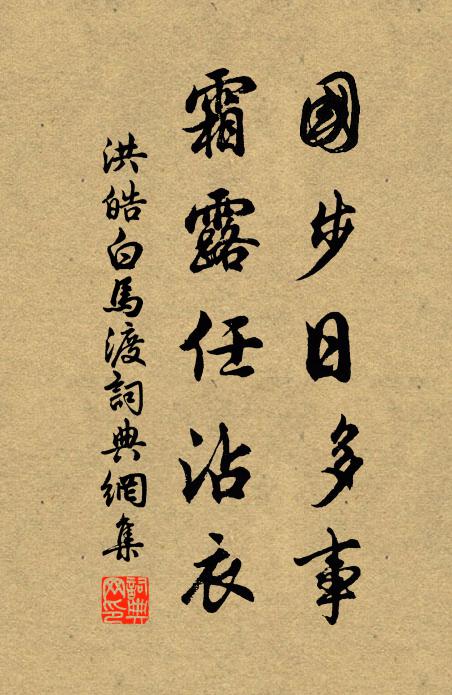 國步日多事
霜露任沾衣
洪皓白馬渡詞典網集
詞典网印